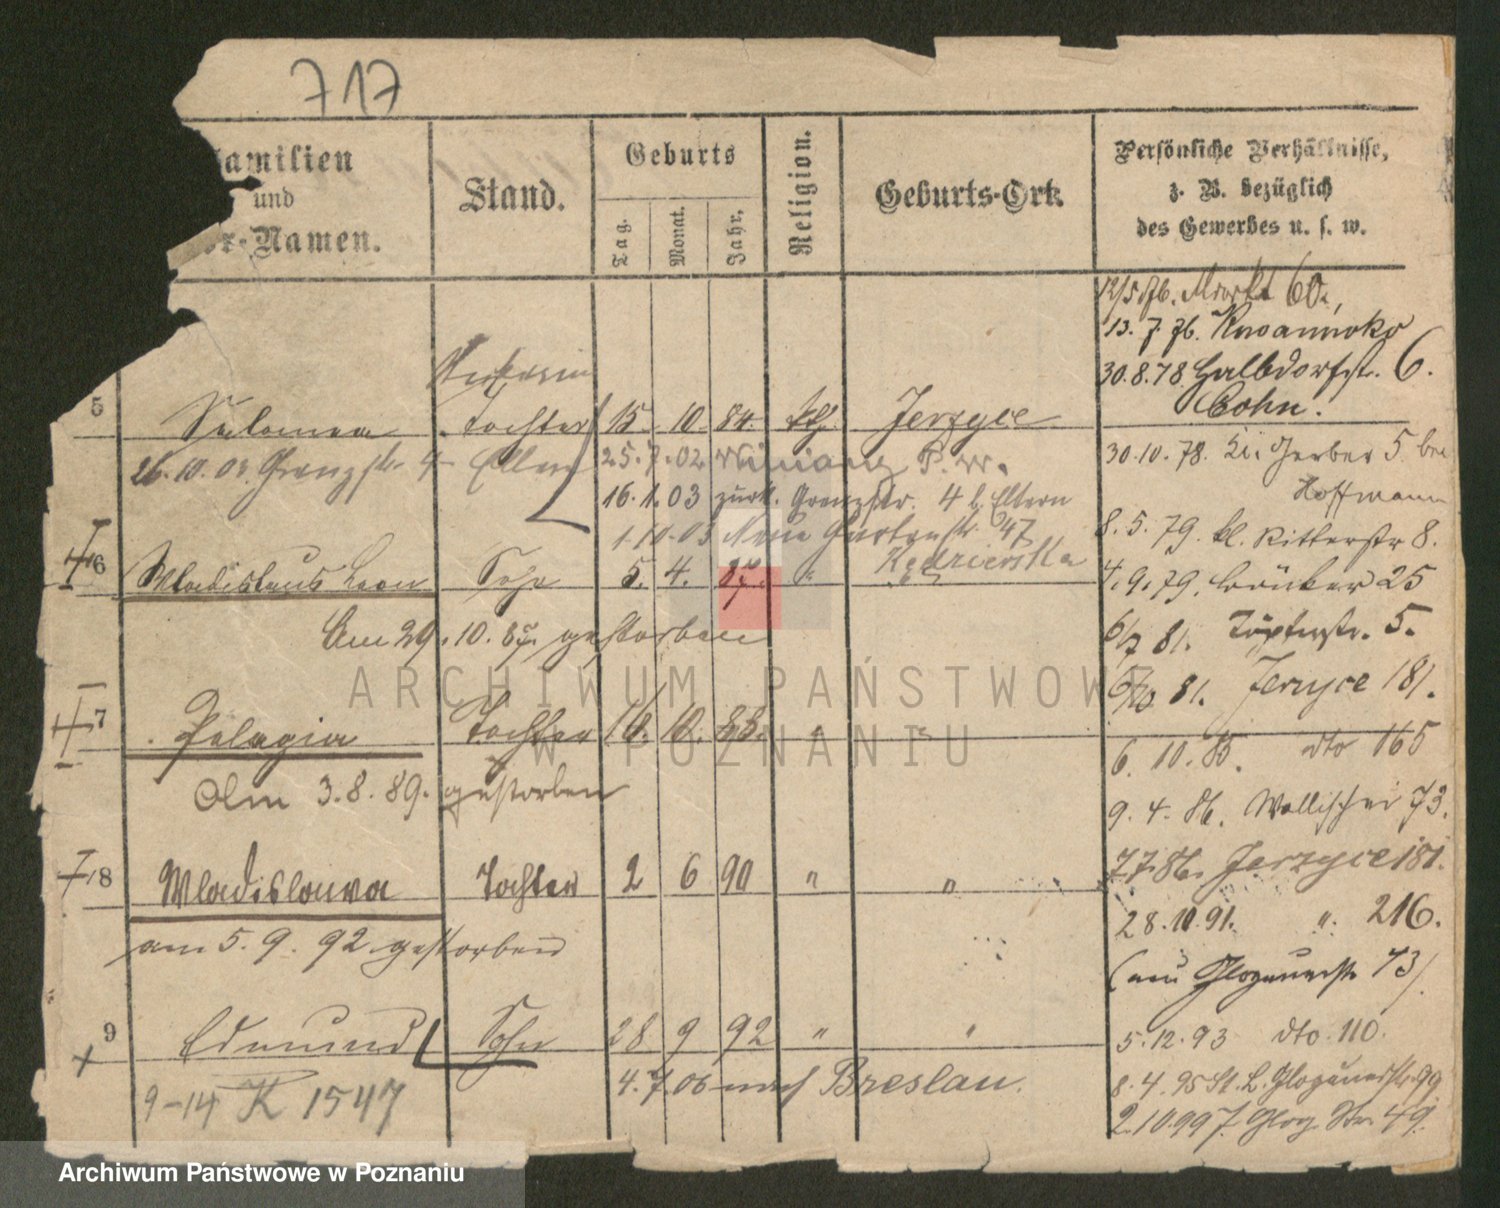 717
Familien
und
Vor-Namen.
Stand.
Geburts
Tag.
Monat.
Jahr.
Religion.
Geburts-Ort.
Persönliche Verhältnisse,
z. B. bezüglich
des Gewerbes u. s. w.
12/5 76. Markt 60.
13. 7. 76.
30.8.78 Halbdorfstr. 6.
Cohn.
5 Salomea Tochter 15. 10. 84. kth. Jerzyce
26.10.03. Grenzstr. 4 Eltern 25.7.02
16.1.03 zurk. Grenzstr. 4 b. Eltern
1.10.03 Neue Gartenstr. 47
30.10.78. kl. Gerber 5 bei
Hoffmann
8.5.79. kl. Ritterstr 8.
6 Wladislaus Leon Sohn 5. 4. 87. "
4.9.79. 25
Am 29.10.87. gestorben
6/7 81. Töpferstr. 5.
6/10 81. Jerzyce 181.
7 Pelagia Tochter 16. 10. 88. " "
Am 3.8.89. gestorben
6. 10. 85. dto 165
9. 4. 86. Wallischei 73.
7.7.86. Jerzyce 181.
8 Wladislawa Tochter 2 6 90 " "
am 5.9.92 gestorben
28.10.91. " 216.
(neu Glogauerstr 73)
9 Edmund Sohn 28 9 92 " "
5.12.93 dto. 110.
4.7.06 nach Breslau.
8.4.95 St. L. Glogauerstr. 99
9-14 K 1547
2.10.99 Glog. Str. 49.
ARCHIWUM PAŃSTWOWE
W POZNANIU
Archiwum Państwowe w Poznaniu